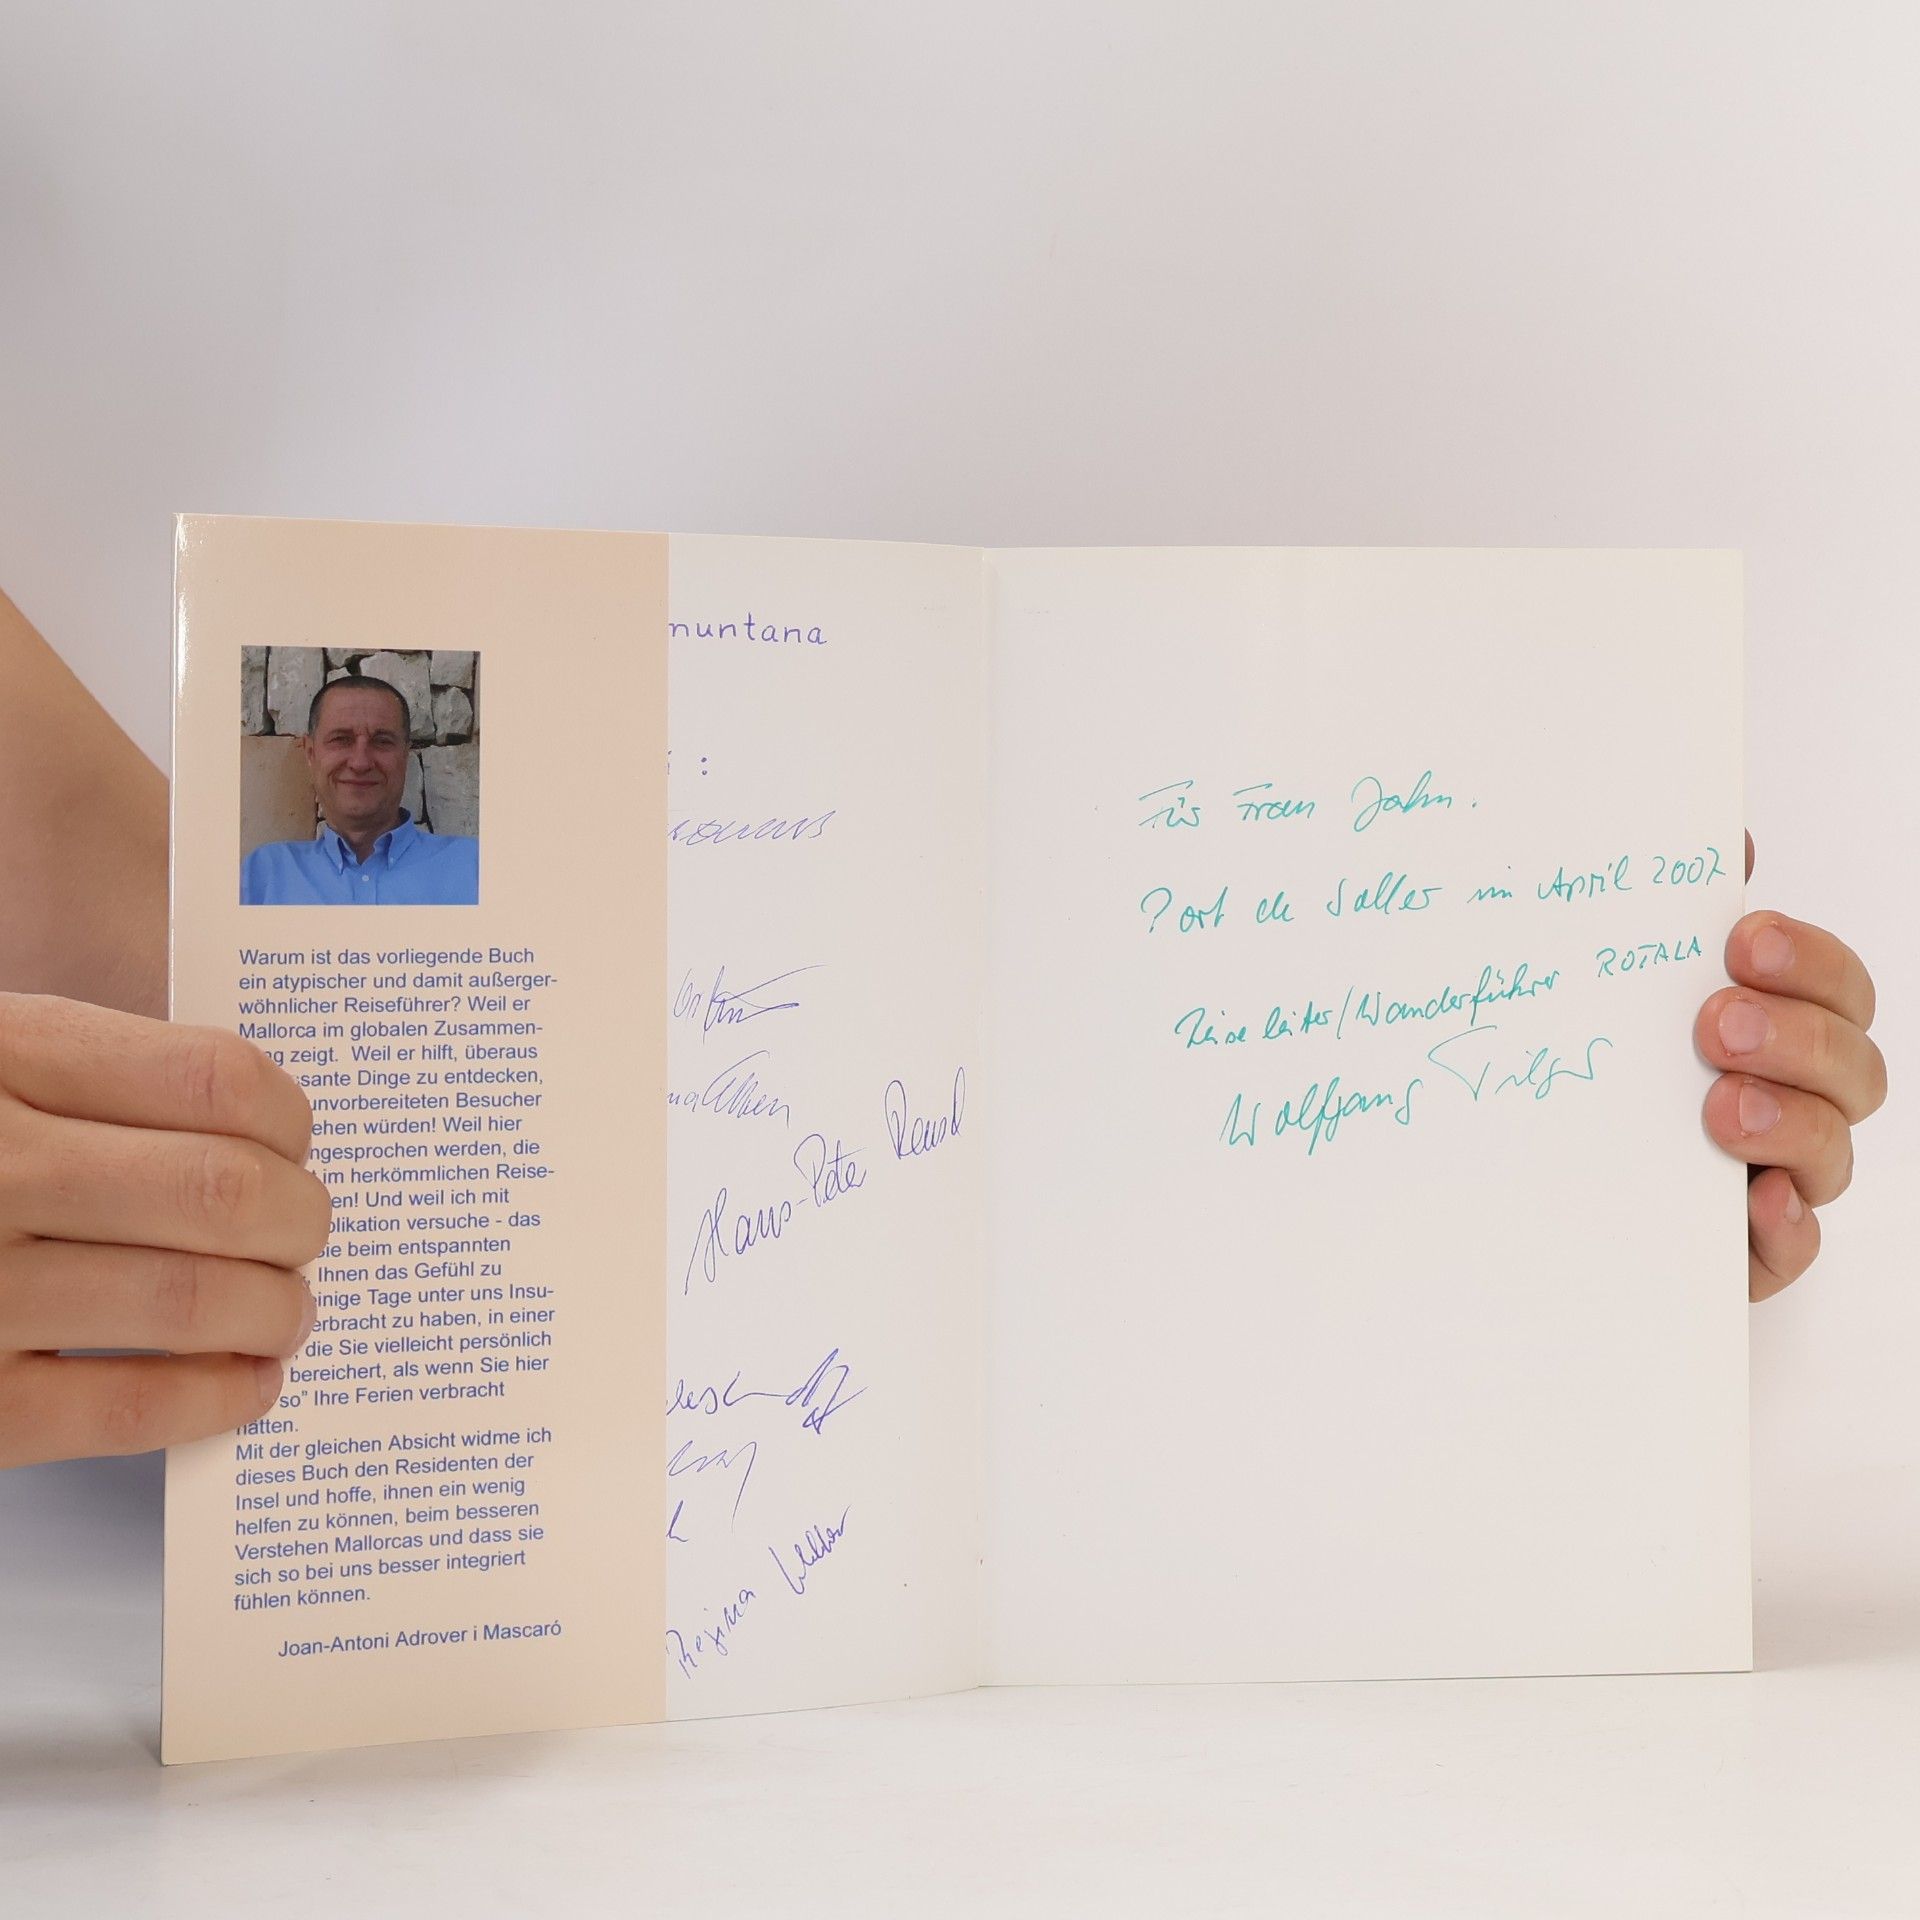 Warum ist das vorliegende Buch
ein atypischer und damit außerger-
wöhnlicher Reiseführer? Weil er
Mallorca im globalen Zusammen-
zeigt. Weil er hilft, überaus
sante Dinge zu entdecken,
unvorbereiteten Besucher
ehen würden! Weil hier
ngesprochen werden, die
im herkömmlichen Reise-
en! Und weil ich mit
blikation versuche - das
Sie beim entspannten
Ihnen das Gefühl zu
einige Tage unter uns Insu-
erbracht zu haben, in einer
die Sie vielleicht persönlich
bereichert, als wenn Sie hier
so" Ihre Ferien verbracht
hätten.
Mit der gleichen Absicht widme ich
dieses Buch den Residenten der
Insel und hoffe, ihnen ein wenig
helfen zu können, beim besseren
Verstehen Mallorcas und dass sie
sich so bei uns besser integriert
fühlen können.
Joan-Antoni Adrover i Mascaró
muntana
:
Hans-Peter
Regina
Für Frau Jahn.
Port de Soller im April 2007
Reiseleiter/Wanderführer ROTALA
Wolfgang Filger